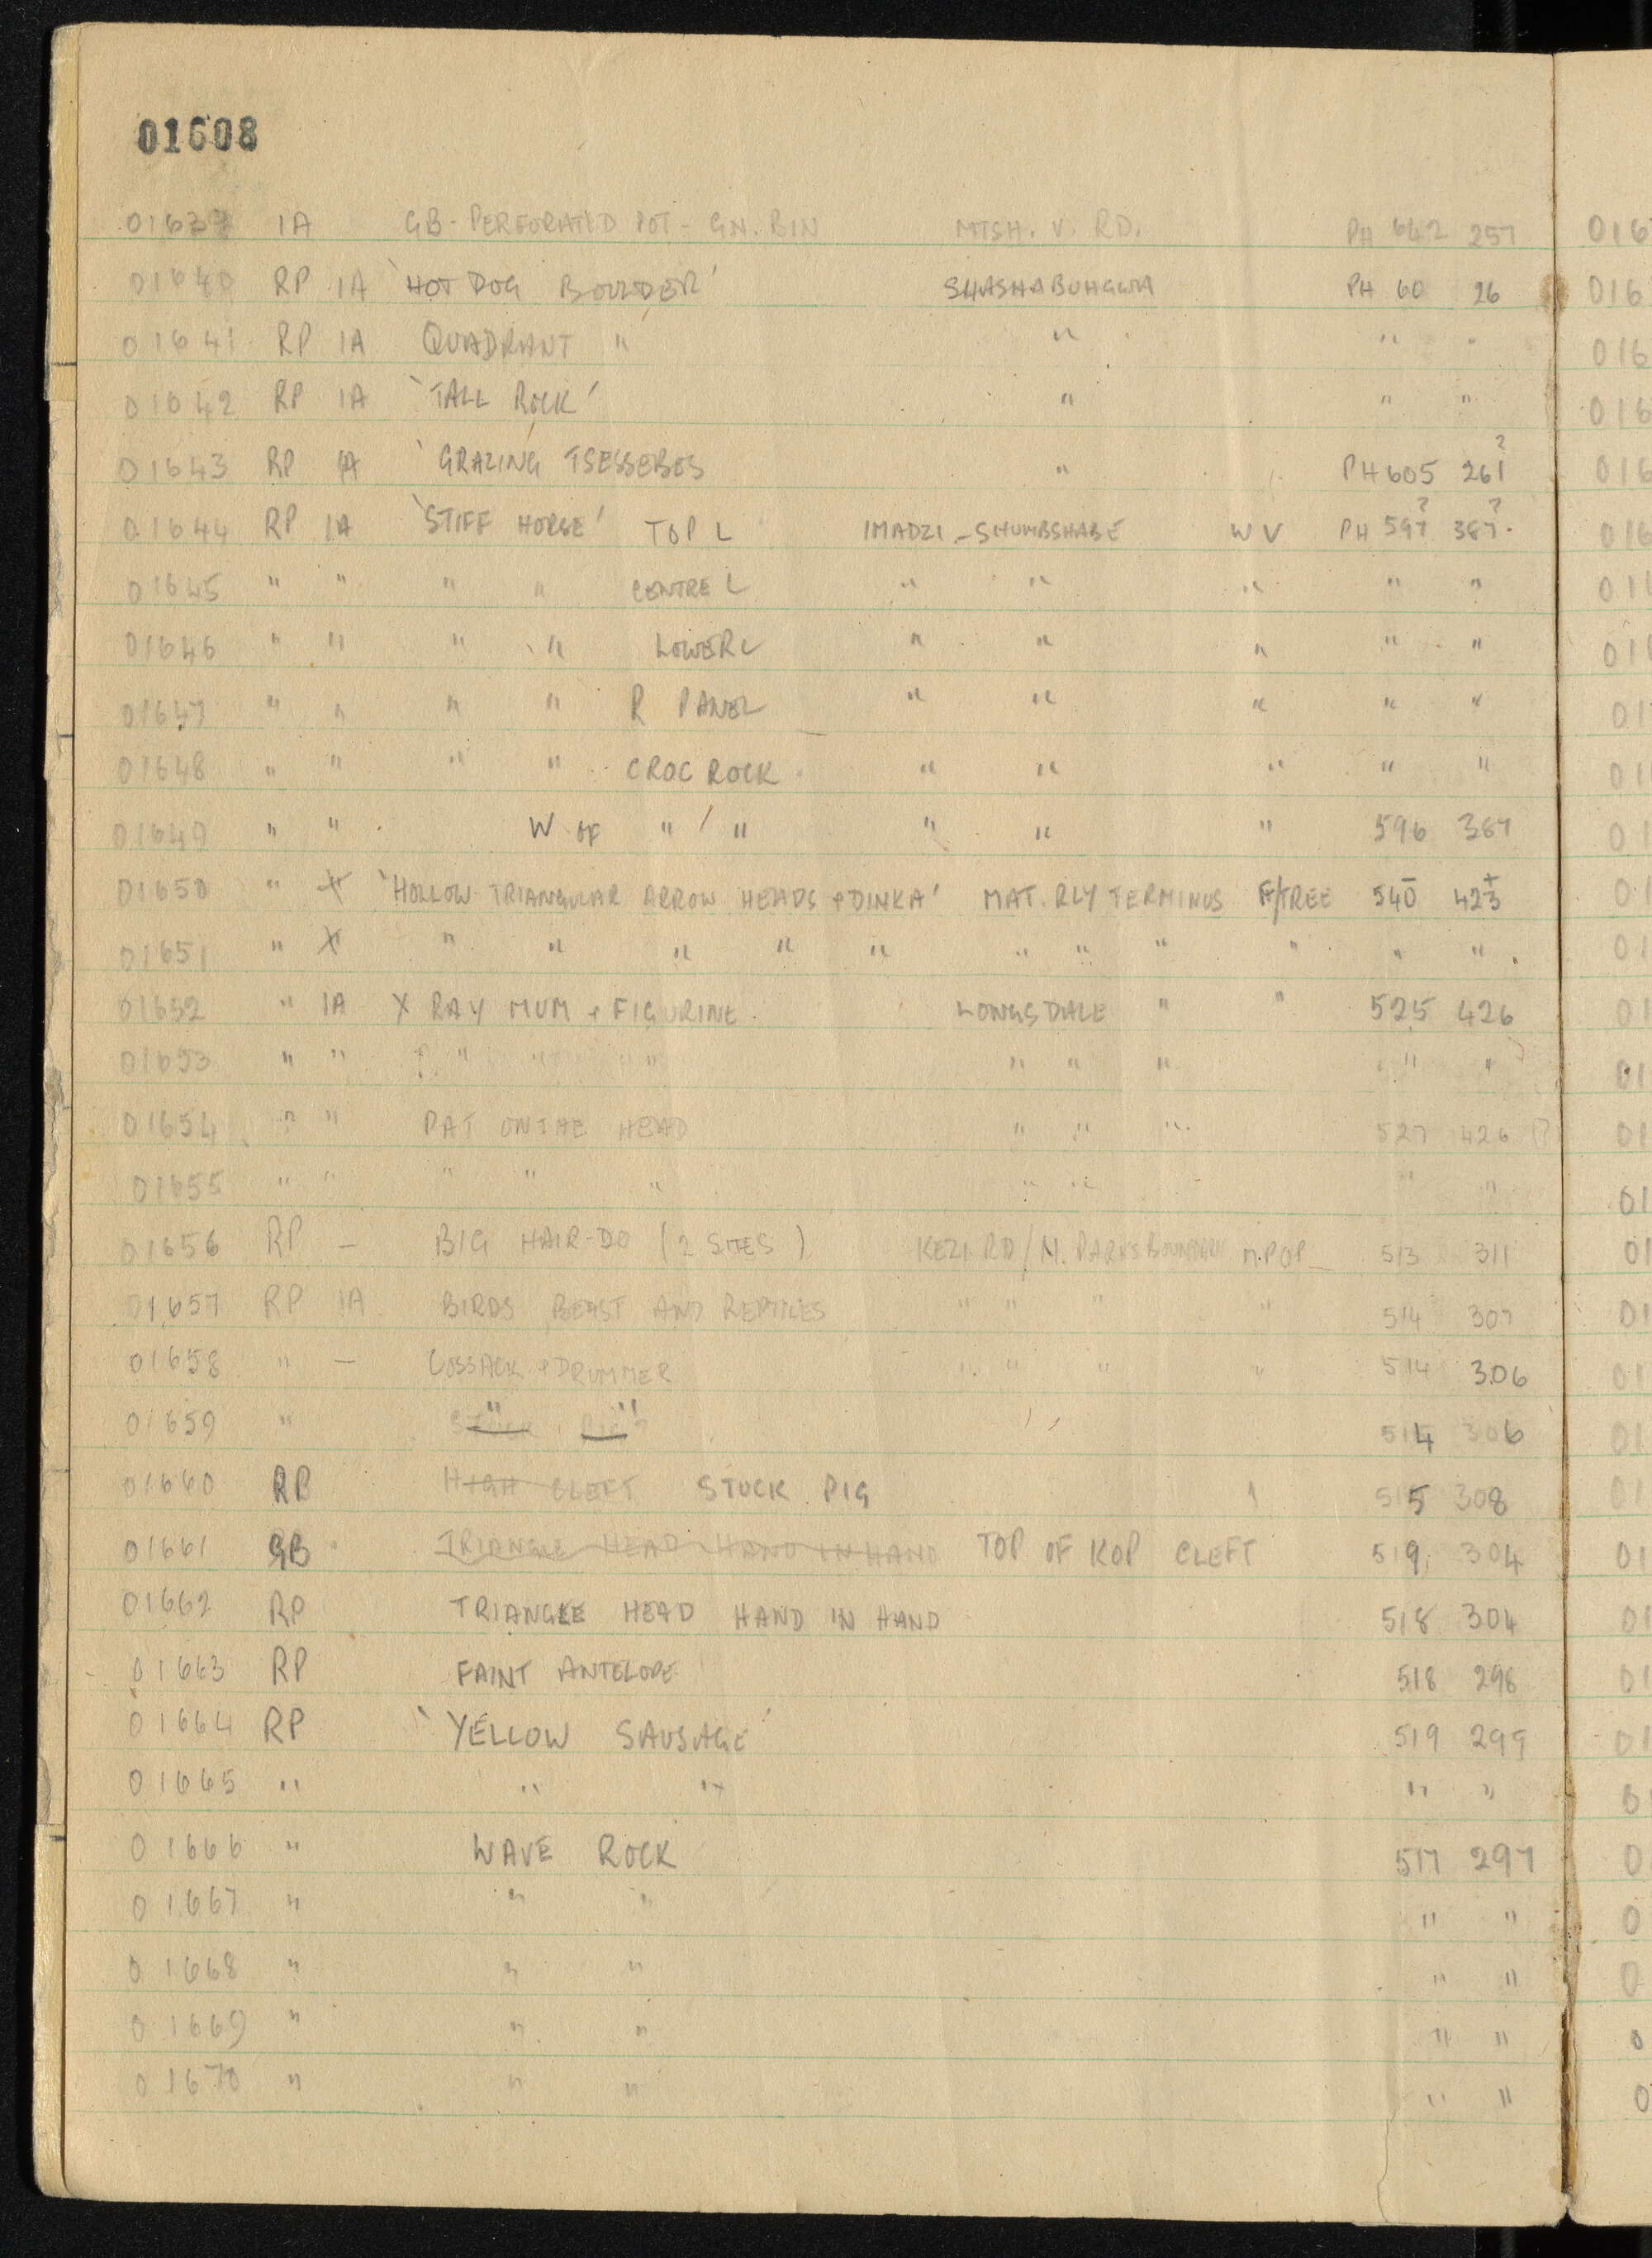 01608
01639 IA GB - PERFORATED POT - GN. BIN MTSH. V. RD. PH 642 257
01640 RP IA 'HOT DOG BOULDER' SHASHABUHGWA PH 60 26
01641 RP IA QUADRANT " " " "
01642 RP IA 'TALL ROCK' " " "
01643 RP IA 'GRAZING TSESSEBES " PH 605 261?
01644 RP IA 'STIFF HORSE' TOP L IMADZI - SHUMBSHABE W V PH 597? 387?
01645 " " " " CENTRE L " " " " "
01646 " " " " LOWER L " " " " "
01647 " " " " R PANEL " " " " "
01648 " " " " CROC ROCK " " " " "
01649 " " W OF " " " " " 596 387
01650 " X 'HOLLOW TRIANGULAR ARROW HEADS + DINKA' MAT. RLY TERMINUS F/TREE 540 423
01651 " X " " " " " " " " " " "
01652 " IA X RAY MUM + FIGURINE LONGSDALE " " 525 426
01653 " " " " " " " " " "
01654 " " PAT ON THE HEAD " " " 527 426
01655 " " " " " " " " "
01656 RP - BIG HAIR-DO (2 SITES) KEZI RD / N. PARKS BOUNDARY M.POP 513 311
01657 RP IA BIRDS, BEAST AND REPTILES " " " " 514 307
01658 " - COSSACK + DRUMMER " " " " 514 306
01659 " " " 514 306
01660 RP HIGH CLEFT STUCK PIG 515 308
01661 GB TRIANGLE HEAD HAND IN HAND TOP OF KOP CLEFT 519 304
01662 RP TRIANGLE HEAD HAND IN HAND 518 304
01663 RP FAINT ANTELOPE 518 298
01664 RP 'YELLOW SAUSAGE' 519 299
01665 " " " " "
01666 " WAVE ROCK 517 297
01667 " " " " "
01668 " " " " "
01669 " " " " "
01670 " " " " "